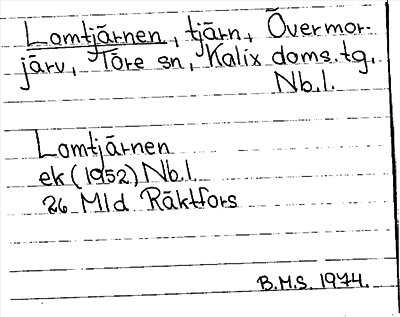 Lomtjärnen, tjärn, Övermor-
järv, Töre sn, Kalix doms.tg,
Nb.l.
Lomtjärnen
ek (1952) Nb.l.
26 Mld Räktfors
B.M.S. 1974.